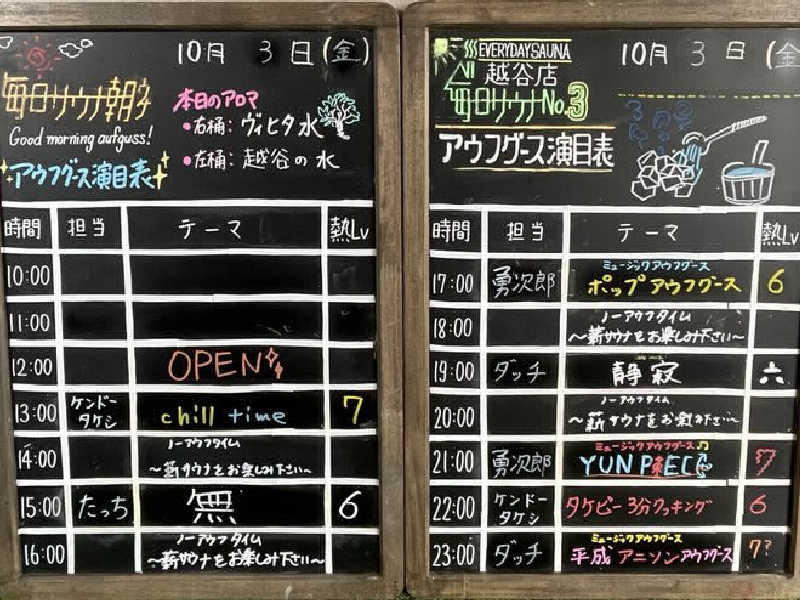 10月 3日(金)
毎日サウナ朝子
Good morning aufguss!
アウフグース演目表
本日のアロマ
•右桶: ヴィヒタ水
•左桶: 越谷の水
時間 担当 テーマ 熱Lv
10:00
11:00
12:00 OPEN
13:00 ケンドータケシ chill time 7
14:00 ノーアウフタイム
〜薪サウナをお楽しみ下さい〜
15:00 たっち 無 6
16:00 ノーアウフタイム
〜薪サウナをお楽しみ下さい〜
10月 3日(金
EVERYDAYSAUNA
越谷店
毎日サウナNo.3
アウフグース演目表
時間 担当 テーマ 熱Lv
17:00 勇次郎 ミュージックアウフグース
ポップアウフグース 6
18:00 ノーアウフタイム
〜薪サウナをお楽しみ下さい〜
19:00 ダッチ 静寂 六
20:00 ノーアウフタイム
〜薪サウナをお楽しみ下さい〜
21:00 勇次郎 ミュージックアウフグース♫
YUN PIECE 7
22:00 ケンドータケシ タケピー3分クッキング 6
23:00 ダッチ ミュージックアウフグース
平成アニソンアウフグース 7?